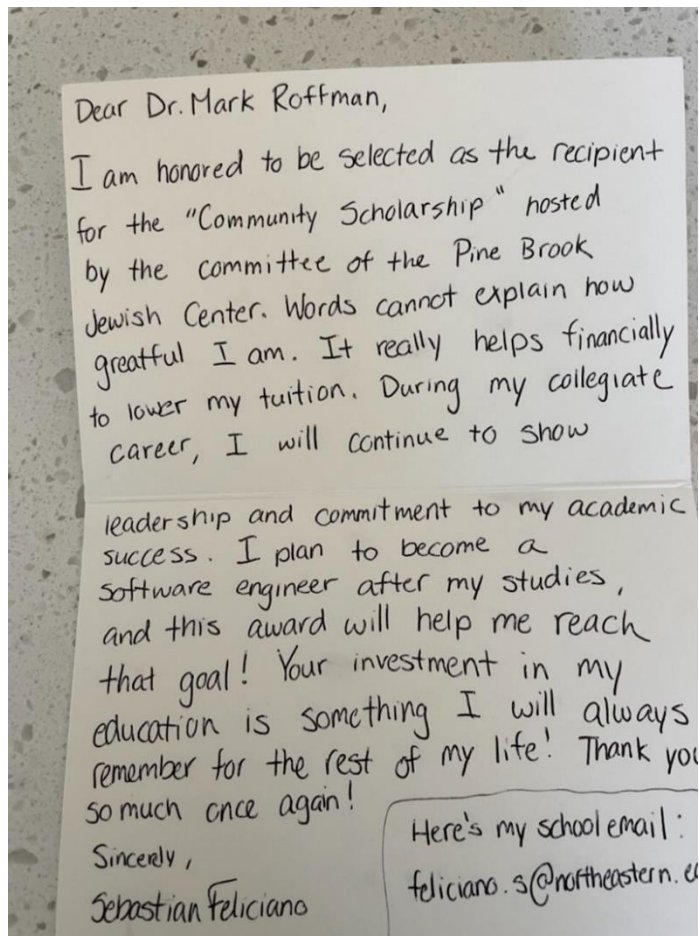 Dear Dr. Mark Roffman,
I am honored to be selected as the recipient
for the "Community Scholarship" hosted
by the committee of the Pine Brook
Jewish Center. Words cannot explain how
greatful I am. It really helps financially
to lower my tuition. During my collegiate
career, I will continue to show
leadership and commitment to my academic
success. I plan to become a
software engineer after my studies,
and this award will help me reach
that goal! Your investment in my
education is something I will always
remember for the rest of my life! Thank you
so much once again!
Sincerely,
Sebastian Feliciano
Here's my school email:
feliciano.s@northeastern.e